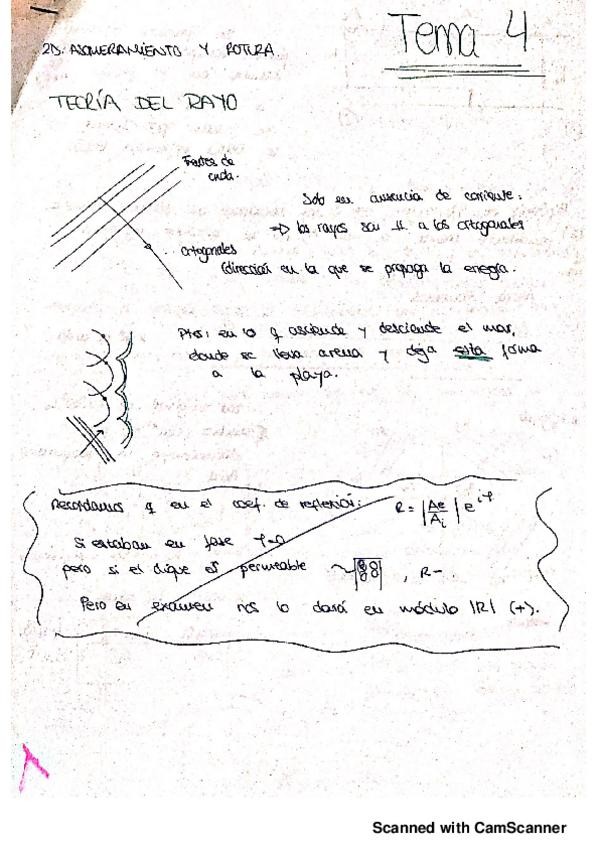 Tema 4
2D. ASOMERAMIENTO Y ROTURA.
TEORÍA DEL RAYO
Frentes de
onda.
Solo en ausencia de corriente:
=> los rayos son // a las ortogonales
ortogonales
(dirección en la que se propaga la energía.
Ptos: en lo q asciende y desciende el mar,
donde se lleva arena y deja esta forma
a la playa.
Recordamos q en el coef. de reflexión: R = |Ae/Ai| e^iφ
Si estaban en fase φ=0
pero si el dique es permeable , R-.
Pero en examen nos lo dará en módulo |R| (+).
Scanned with CamScanner